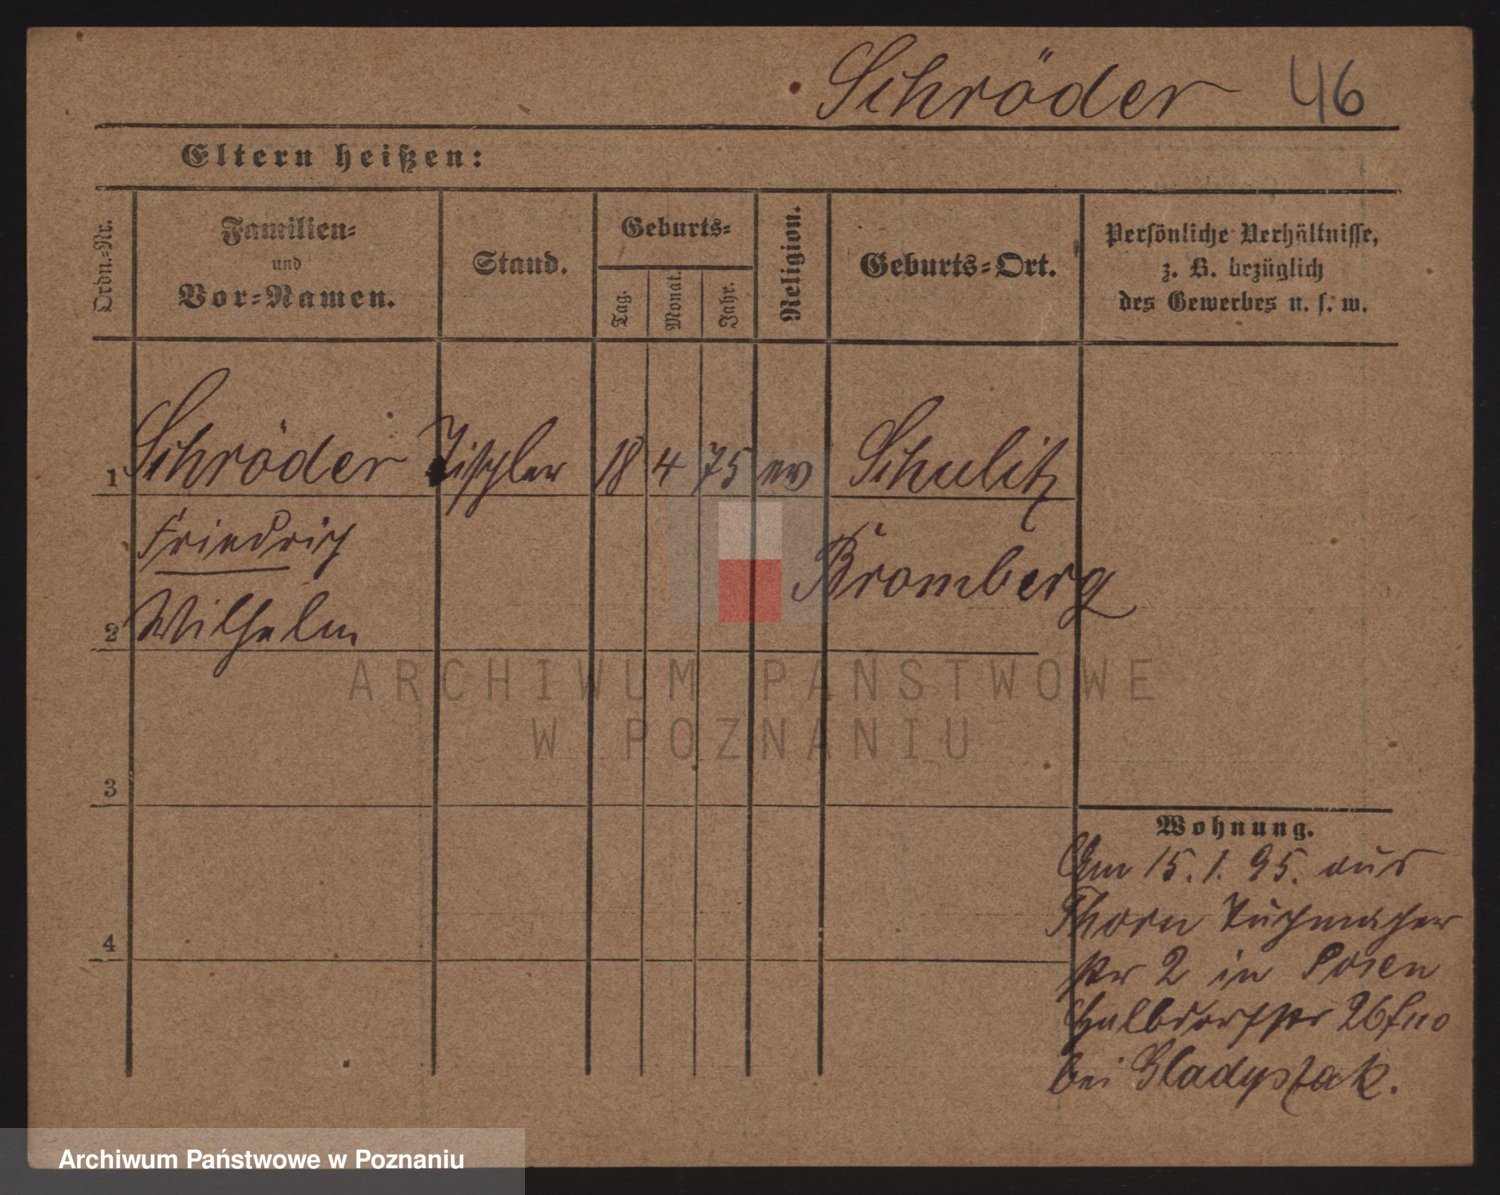 Schröder 46
Eltern heißen:
Ordn.-Nr.
Familien-
und
Vor-Namen.
Stand.
Geburts-
Tag.
Monat.
Jahr.
Religion.
Geburts-Ort.
Persönliche Verhältnisse,
z. B. bezüglich
des Gewerbes u. s. w.
1 Schröder Tischler 18 4 75 ev Schulitz
Friedrich Bromberg
2 Wilhelm
ARCHIWUM PAŃSTWOWE
W POZNANIU
3
Wohnung.
Am 15.1.95. aus
Thorn Tuchmacher
4
str 2 in Posen
Halbdorfstr 26
bei Gladyszak.
Archiwum Państwowe w Poznaniu